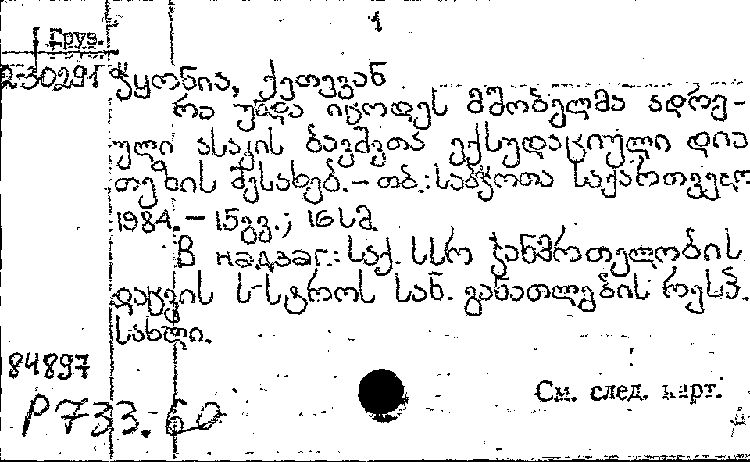 1
Груз.
2-30291 ჭყონია, ქეთევან
რა უნდა იცოდეს მშობელმა ადრე-
ული ასაკის ბავშვთა ექსუდაციური დია
თეზის შესახებ. – თბ.: საბჭოთა საქართველო
1984. – 15გვ.; 16სმ.
В надзаг.: საქ. სსრ ჯანმრთელობის
დაცვის ს-სტროს სან. განათლების რესპ.
სახლი.
84897
P733.60
См. след. карт.